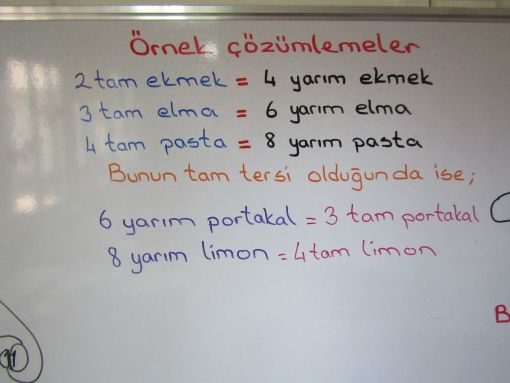 Örnek çözümlemeler
2 tam ekmek = 4 yarım ekmek
3 tam elma = 6 yarım elma
4 tam pasta = 8 yarım pasta
Bunun tam tersi olduğunda ise;
6 yarım portakal = 3 tam portakal
8 yarım limon = 4 tam limon
B
11